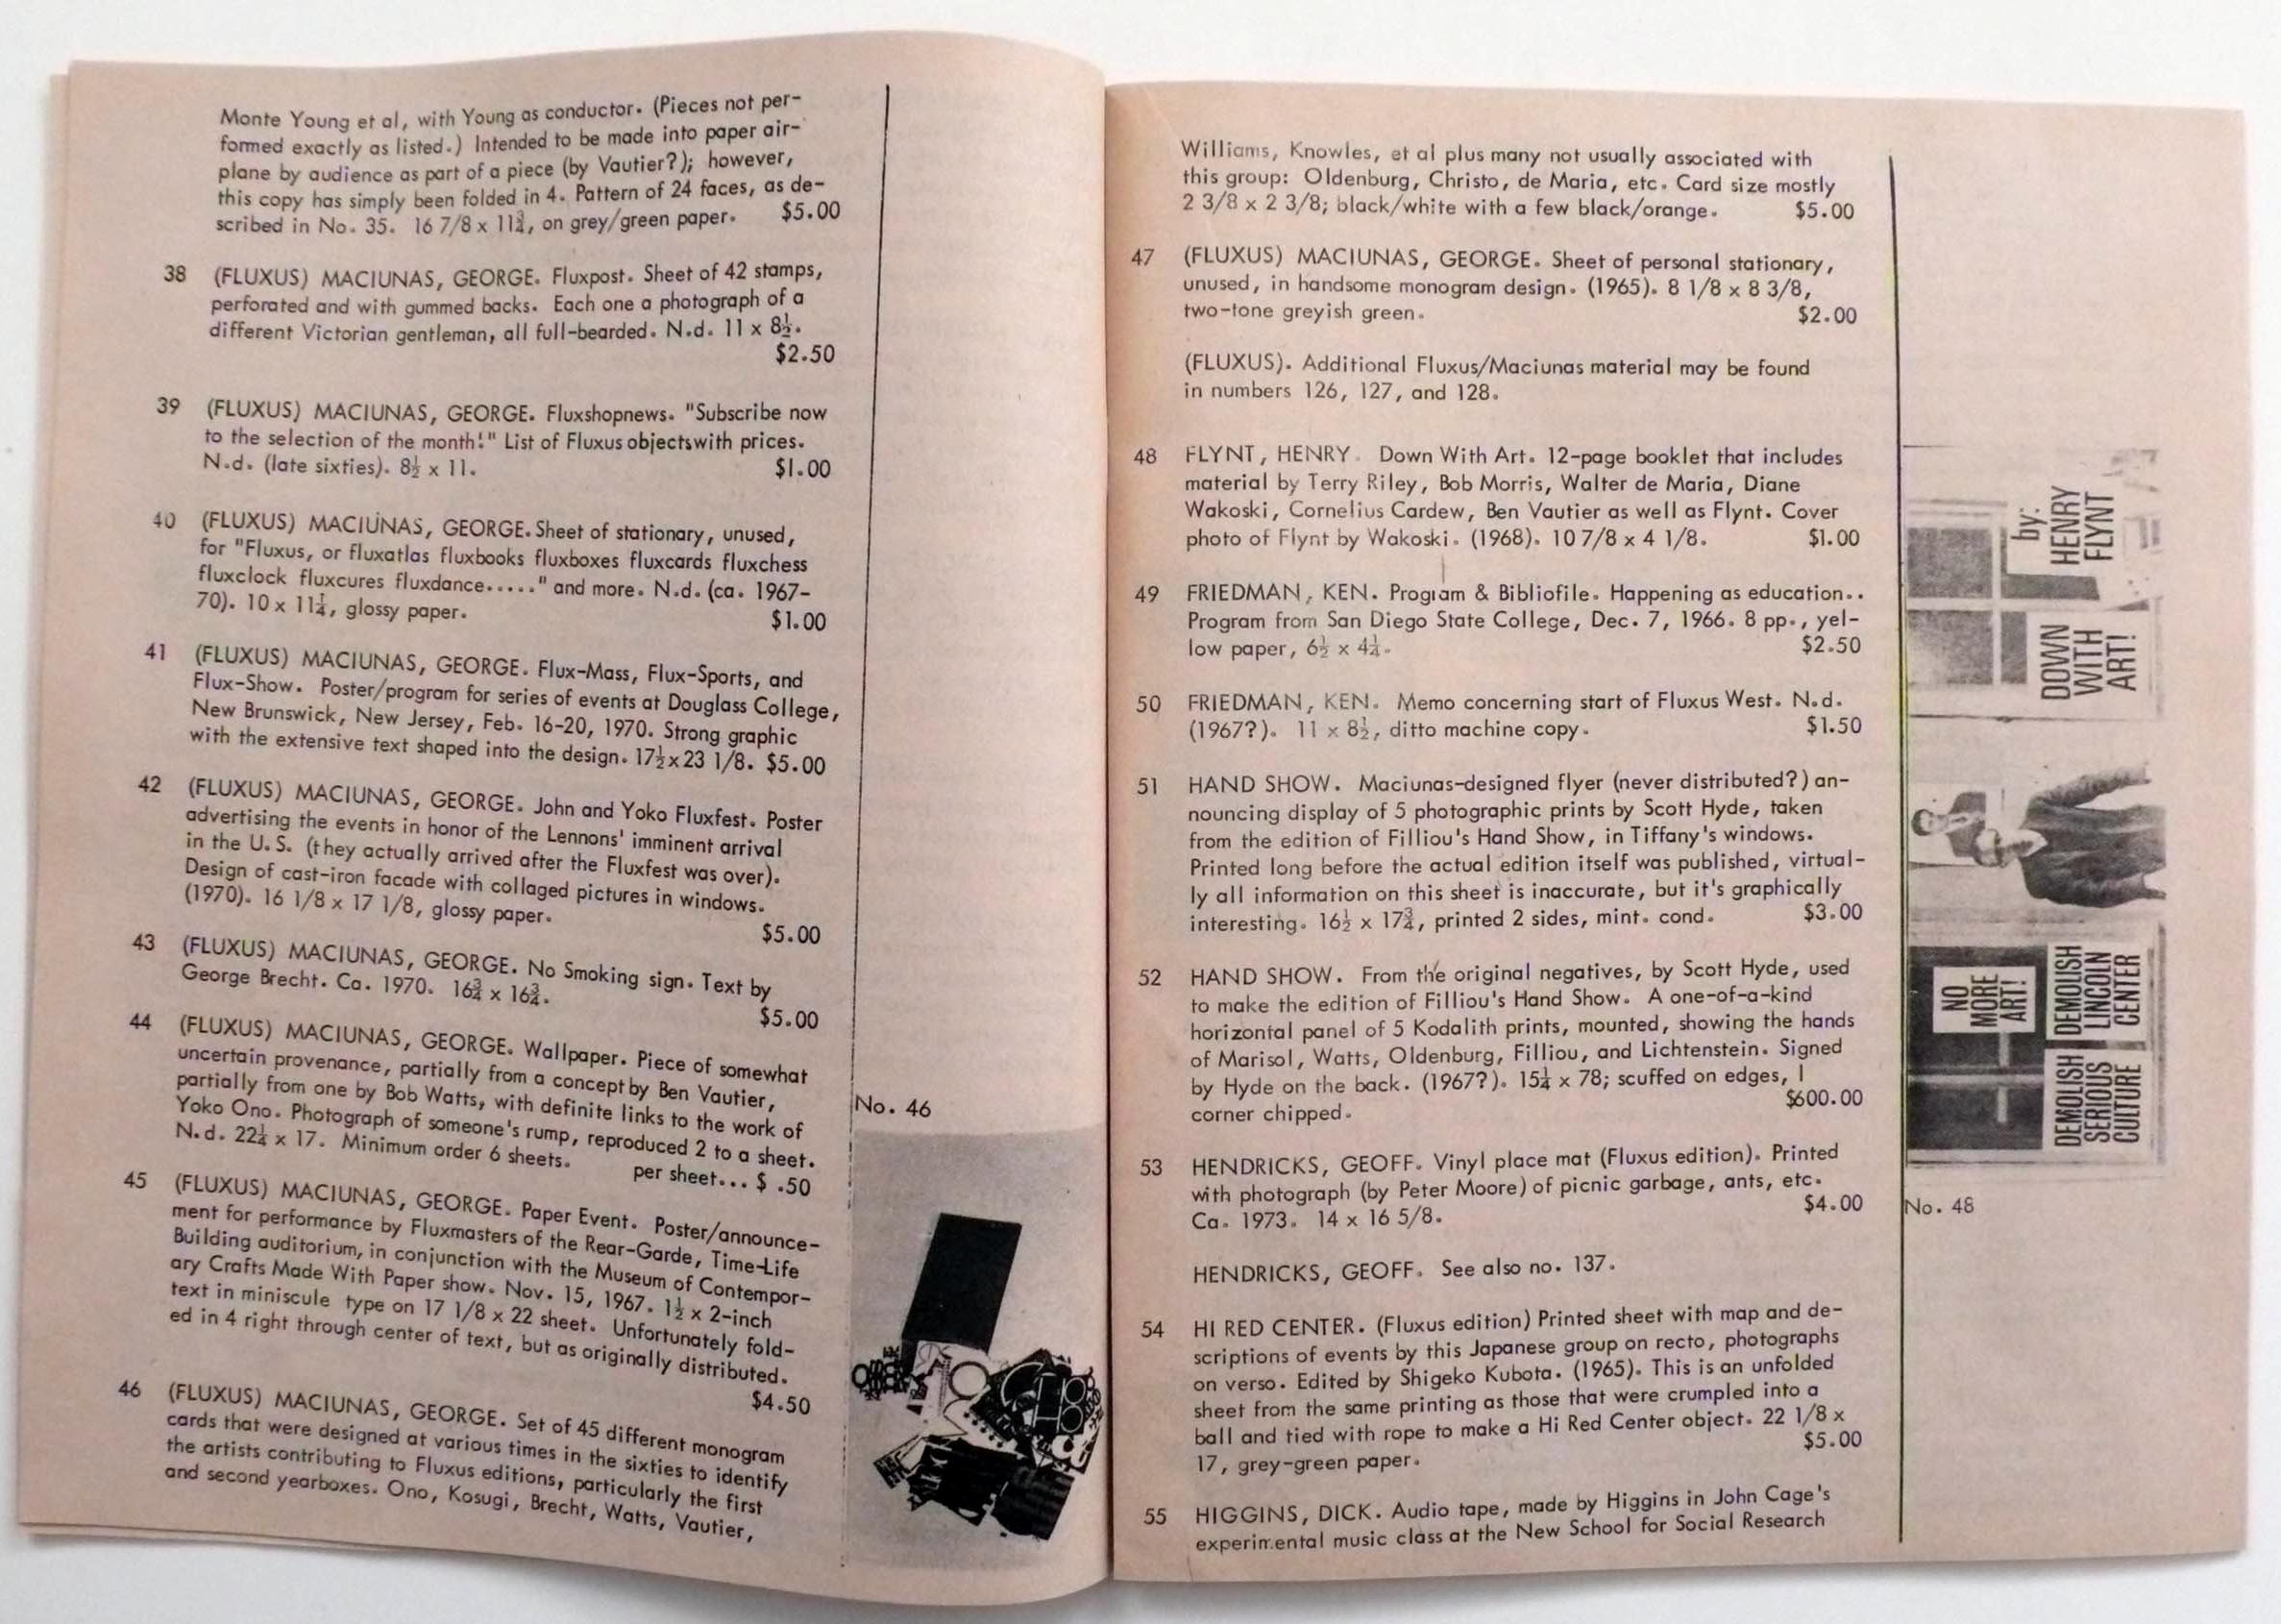 Monte Young et al, with Young as conductor. (Pieces not per-
formed exactly as listed.) Intended to be made into paper air-
plane by audience as part of a piece (by Vautier?); however,
this copy has simply been folded in 4. Pattern of 24 faces, as de-
scribed in No. 35. 16 7/8 x 11¾, on grey/green paper. $5.00
38 (FLUXUS) MACIUNAS, GEORGE. Fluxpost. Sheet of 42 stamps,
perforated and with gummed backs. Each one a photograph of a
different Victorian gentleman, all full-bearded. N.d. 11 x 8½.
$2.50
39 (FLUXUS) MACIUNAS, GEORGE. Fluxshopnews. "Subscribe now
to the selection of the month!" List of Fluxus objectswith prices.
N.d. (late sixties). 8½ x 11. $1.00
40 (FLUXUS) MACIUNAS, GEORGE. Sheet of stationary, unused,
for "Fluxus, or fluxatlas fluxbooks fluxboxes fluxcards fluxchess
fluxclock fluxcures fluxdance....." and more. N.d. (ca. 1967-
70). 10 x 11¼, glossy paper. $1.00
41 (FLUXUS) MACIUNAS, GEORGE. Flux-Mass, Flux-Sports, and
Flux-Show. Poster/program for series of events at Douglass College,
New Brunswick, New Jersey, Feb. 16-20, 1970. Strong graphic
with the extensive text shaped into the design. 17½x23 1/8. $5.00
42 (FLUXUS) MACIUNAS, GEORGE. John and Yoko Fluxfest. Poster
advertising the events in honor of the Lennons' imminent arrival
in the U.S. (they actually arrived after the Fluxfest was over).
Design of cast-iron facade with collaged pictures in windows.
(1970). 16 1/8 x 17 1/8, glossy paper. $5.00
43 (FLUXUS) MACIUNAS, GEORGE. No Smoking sign. Text by
George Brecht. Ca. 1970. 16¾ x 16¾. $5.00
44 (FLUXUS) MACIUNAS, GEORGE. Wallpaper. Piece of somewhat
uncertain provenance, partially from a concept by Ben Vautier,
partially from one by Bob Watts, with definite links to the work of
Yoko Ono. Photograph of someone's rump, reproduced 2 to a sheet.
N.d. 22¼ x 17. Minimum order 6 sheets. per sheet... $ .50
45 (FLUXUS) MACIUNAS, GEORGE. Paper Event. Poster/announce-
ment for performance by Fluxmasters of the Rear-Garde, Time-Life
Building auditorium, in conjunction with the Museum of Contempor-
ary Crafts Made With Paper show. Nov. 15, 1967. 1½ x 2-inch
text in miniscule type on 17 1/8 x 22 sheet. Unfortunately fold-
ed in 4 right through center of text, but as originally distributed.
$4.50
46 (FLUXUS) MACIUNAS, GEORGE. Set of 45 different monogram
cards that were designed at various times in the sixties to identify
the artists contributing to Fluxus editions, particularly the first
and second yearboxes. Ono, Kosugi, Brecht, Watts, Vautier,
No. 46
Williams, Knowles, et al plus many not usually associated with
this group: Oldenburg, Christo, de Maria, etc. Card size mostly
2 3/8 x 2 3/8; black/white with a few black/orange. $5.00
47 (FLUXUS) MACIUNAS, GEORGE. Sheet of personal stationary,
unused, in handsome monogram design. (1965). 8 1/8 x 8 3/8,
two-tone greyish green. $2.00
(FLUXUS). Additional Fluxus/Maciunas material may be found
in numbers 126, 127, and 128.
48 FLYNT, HENRY. Down With Art. 12-page booklet that includes
material by Terry Riley, Bob Morris, Walter de Maria, Diane
Wakoski, Cornelius Cardew, Ben Vautier as well as Flynt. Cover
photo of Flynt by Wakoski. (1968). 10 7/8 x 4 1/8. $1.00
49 FRIEDMAN, KEN. Program & Bibliofile. Happening as education..
Program from San Diego State College, Dec. 7, 1966. 8 pp., yel-
low paper, 6½ x 4¼. $2.50
50 FRIEDMAN, KEN. Memo concerning start of Fluxus West. N.d.
(1967?). 11 x 8½, ditto machine copy. $1.50
51 HAND SHOW. Maciunas-designed flyer (never distributed?) an-
nouncing display of 5 photographic prints by Scott Hyde, taken
from the edition of Filliou's Hand Show, in Tiffany's windows.
Printed long before the actual edition itself was published, virtual-
ly all information on this sheet is inaccurate, but it's graphically
interesting. 16½ x 17¾, printed 2 sides, mint. cond. $3.00
52 HAND SHOW. From the original negatives, by Scott Hyde, used
to make the edition of Filliou's Hand Show. A one-of-a-kind
horizontal panel of 5 Kodalith prints, mounted, showing the hands
of Marisol, Watts, Oldenburg, Filliou, and Lichtenstein. Signed
by Hyde on the back. (1967?). 15¼ x 78; scuffed on edges, 1
corner chipped. $600.00
53 HENDRICKS, GEOFF. Vinyl place mat (Fluxus edition). Printed
with photograph (by Peter Moore) of picnic garbage, ants, etc.
Ca. 1973. 14 x 16 5/8. $4.00
HENDRICKS, GEOFF. See also no. 137.
54 HI RED CENTER. (Fluxus edition) Printed sheet with map and de-
scriptions of events by this Japanese group on recto, photographs
on verso. Edited by Shigeko Kubota. (1965). This is an unfolded
sheet from the same printing as those that were crumpled into a
ball and tied with rope to make a Hi Red Center object. 22 1/8 x
17, grey-green paper. $5.00
55 HIGGINS, DICK. Audio tape, made by Higgins in John Cage's
experimental music class at the New School for Social Research
DOWN
WITH
ART!
by:
HENRY
FLYNT
NO
MORE
ART!
DEMOLISH
SERIOUS
CULTURE
DEMOLISH
LINCOLN
CENTER
No. 48